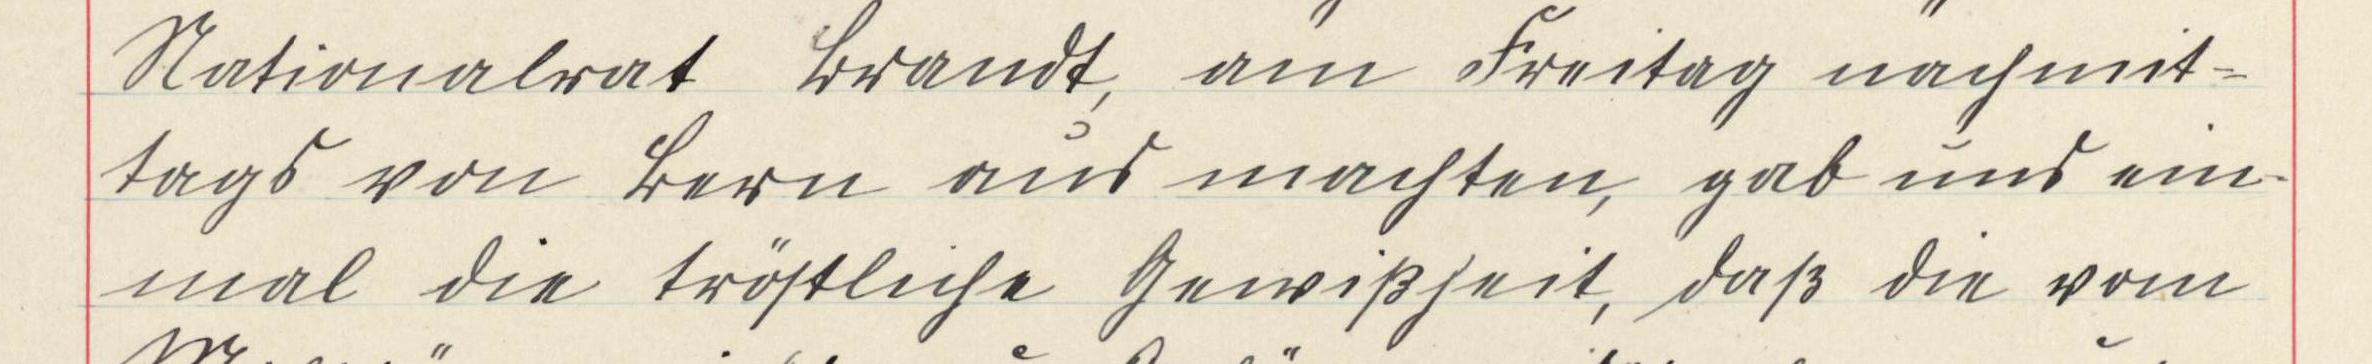 Nationalrat Brandt, am Freitag nachmit-
tags von Bern aus machten, gab uns ein-
mal die tröstliche Gewißheit, daß die vom